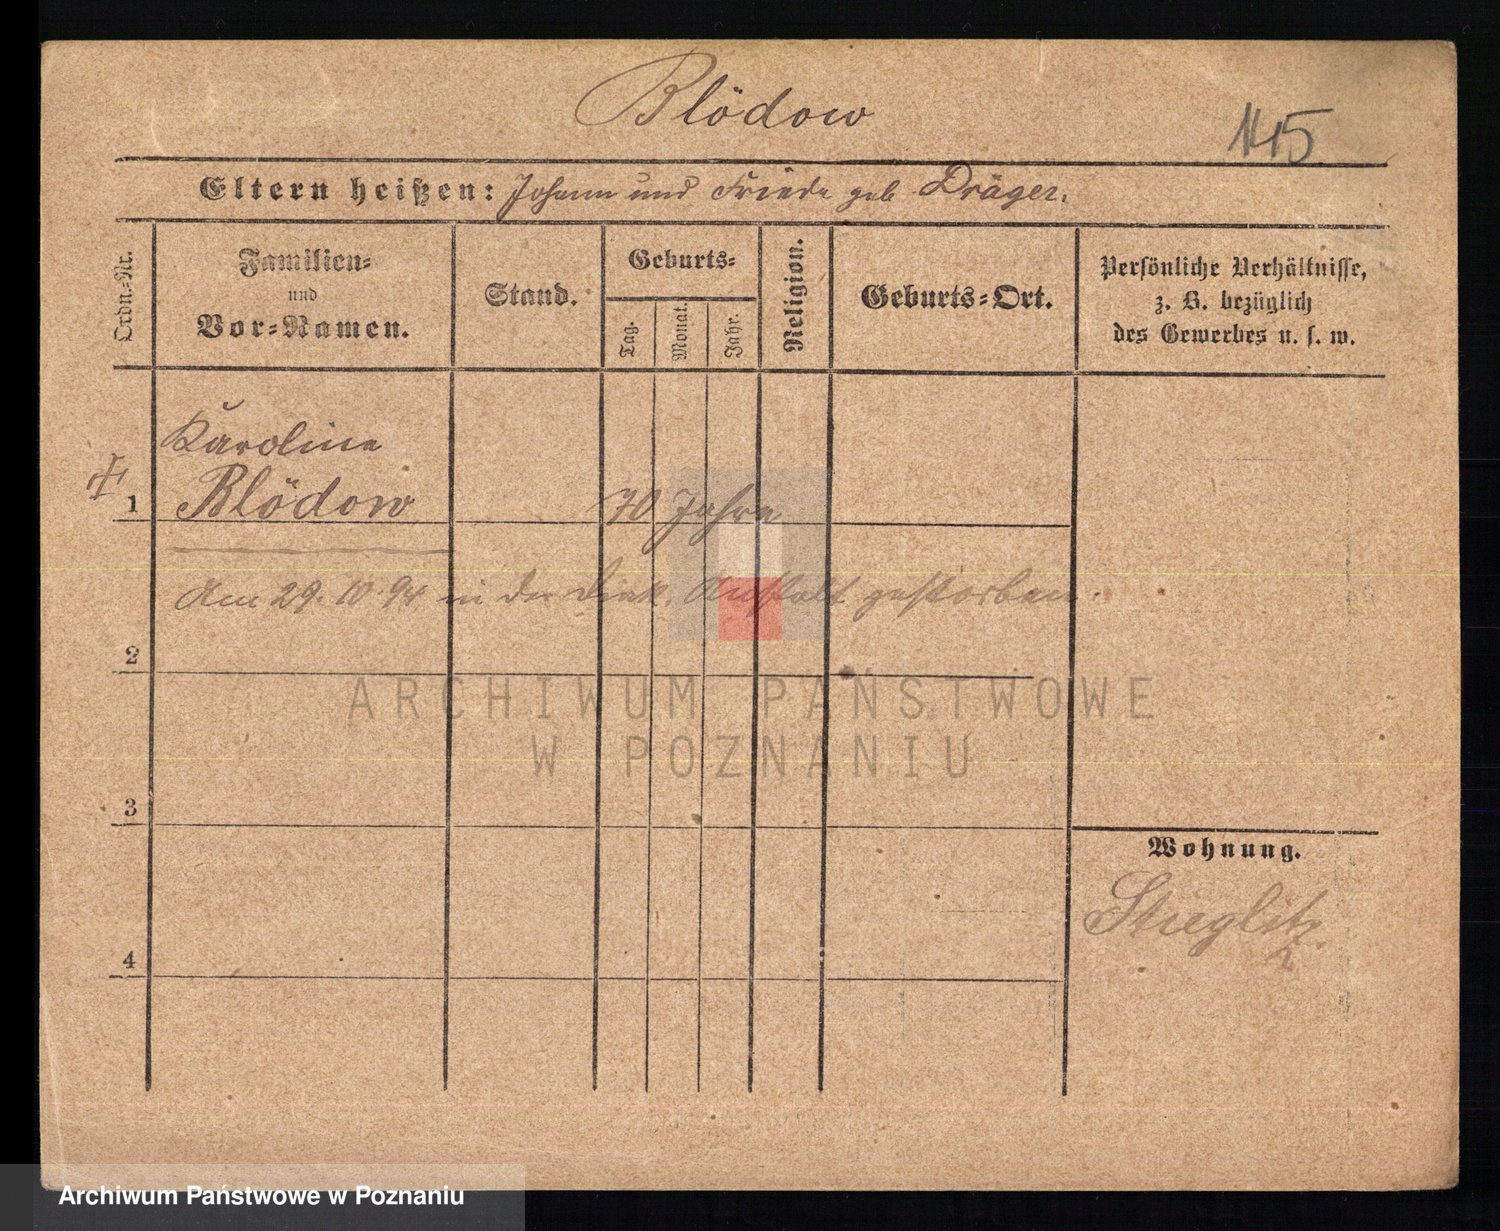 Blödow
145
Eltern heißen: Johann und Friede geb Dräger.
Ordn.-Nr.
Familien-
und
Vor-Namen.
Stand.
Geburts-
Tag.
Monat.
Jahr.
Religion.
Geburts-Ort.
Persönliche Verhältnisse,
z. B. bezüglich
des Gewerbes u. s. w.
Karoline
1 Blödow 70 Jahre
Am 29.10.94 in der Diak. Anstalt gestorben.
2
ARCHIWUM PAŃSTWOWE
W POZNANIU
3
Wohnung.
Stieglitz
4
Archiwum Państwowe w Poznaniu